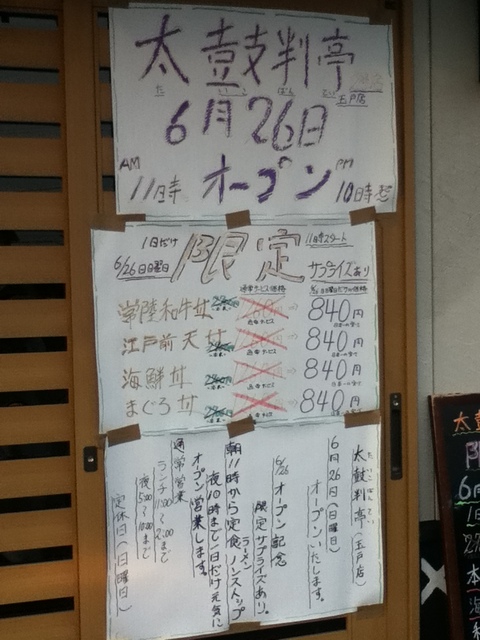 太鼓判亭
たいこばんてい
玉戸店
6月26日
AM
11時
オープン
PM
10時迄
1日だけ
6/26日曜日
限定
11時スタート
サプライズあり
通常サービス価格
常陸和牛丼
840円
江戸前天丼
840円
海鮮丼
840円
まぐろ丼
840円
太鼓判亭(玉戸店)
たいこばんてい
6月26日(日曜日)
オープンいたします。
6/26オープン記念
限定サプライズあり。
朝11時から定食ラーメンノンストップ
夜10時まで1日だけ元気に
オープン営業します。
通常営業
ランチ11:00〜2:00まで
夜5:00〜10:00まで
定休日(日曜日)
太鼓
6月
1日